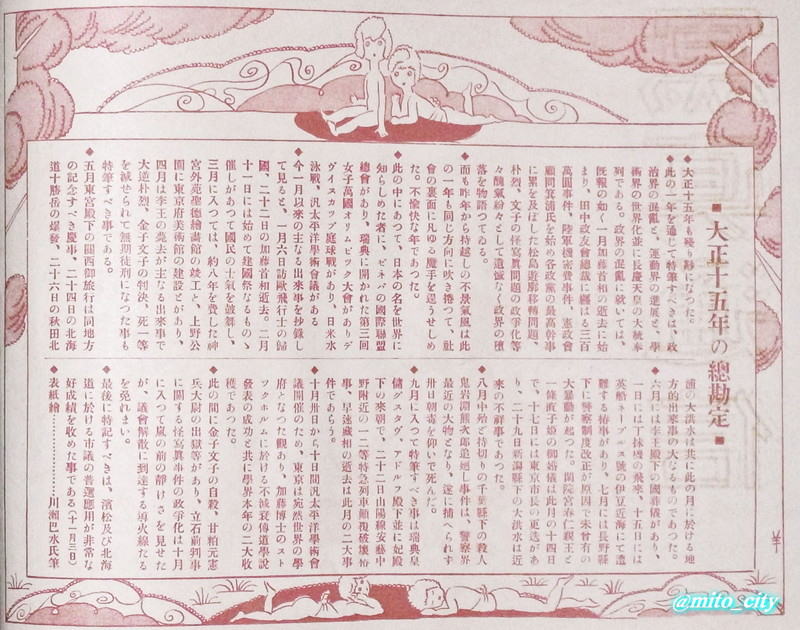 ■大正十五年の總勘定■
◆大正十五年も殘り尠になつた。
◆此の一年を通じて特筆すべきは、政
治界の混亂と、運動界の進展と、學
術界の世界化並に長慶天皇の大統奉
列である。政界の混亂に就いては、
既報の如く一月加藤首相の逝去に始
まり、田中政友會總裁に纒はる三百
萬圓事件、陸軍機密費事件、憲政會
顧問箕浦氏を始め各政黨の最高幹事
に累を及ぼした松島遊廓移轉問題、
朴烈、文子の怪寫眞問題の政爭化等
々醜氣紛々として遺憾なく政界の墮
落を物語つてゐる。
◆而も昨年から持越しの不景氣風は此
の一年も同じ方向に吹き捲つて、社
會の裏面に凡ゆる魔手を逞うせしめ
た。不愉快な年であつた。
◆此の中にあつて、日本の名を世界に
知らしめた者に、ゼネバの國際聯盟
總會があり、瑞典に開かれた第三回
女子萬國オリムピック大會がありデ
ヴイスカップ庭球戰があり、日米水
泳戰、汎太平洋學術會議がある
◆今一月以來の主なる出來事を抄錄し
て見ると、一月六日訪歐飛行士の歸
國、二十二日の加藤首相逝去。二月
十一日には始めて建國祭なるものゝ
催しがあつて國民の士氣を鼓舞し、
三月に入つては、約八年を費した神
宮外苑聖德繪畫館の竣工と、上野公
園に東京府美術館の建設とがあり、
四月は李王の薨去が主なる出來事で
大逆朴烈、金子文子の判決、死一等
を減ぜられて無期徒刑になつた事も
特筆すべき事である。
◆五月東宮殿下の關西御旅行は同地方
の記念すべき慶事、二十四日の北海
道十勝岳の爆發、二十六日の秋田北
浦の大洪水は共に此の月に於ける地
方的出來事の大なるものであつた。
◆六月に李王殿下の國葬儀があり、
一日には丁抹機の飛來、十五日には
英船ネープルス號の伊豆近海にて遭
難する椿事があり、七月には長野縣
下に警察制度改正が原因で未曾有の
大暴動が起つた。閑院宮春仁親王と
一條直子姫の御婚儀は此月の十四日
で、十七日には東京市長の更迭があ
り、二十九日新潟縣下の大洪水は近
來の不祥事であつた。
◆八月中始ど持切りの千葉縣下の殺人
鬼岩淵熊次郎追廻し事件は、警察界
最近の大物となり、遂に捕へられず
卅日朝毒を仰いで死んだ。
◆九月に入つて特筆すべき事は瑞典皇
儲グスタヴ、アドルフ殿下並に妃殿
下の來朝で、二十二日山陽線安藝中
野附近の一二等特急列車顚覆破壞怖
事、早速藏相の逝去は此月の二大事
件であらう。
◆十月卅日から十日間汎太平洋學術會
議開催のため、東京は宛然世界の學
府となつた觀あり、加藤博士のスト
ツクホルムに於ける不減衰傳道學說
發表の成功と共に學界本年の二大收
穫であつた。
◆此の間に金子文子の自殺、甘粕元憲
兵大尉の出獄等があり、立石前判事
に關する怪寫眞事件の政爭化は十月
に入つて嵐の前の靜けさを見せた
が、議會解散に到達する導火線たる
を免れまい。
◆最後に特記すべきは、濱松及び北海
道に於ける市議の普選應用が非常な
好成績を收めた事である（十一月三日）
◆表紙繪…………川瀬巴水氏筆
@mito_city